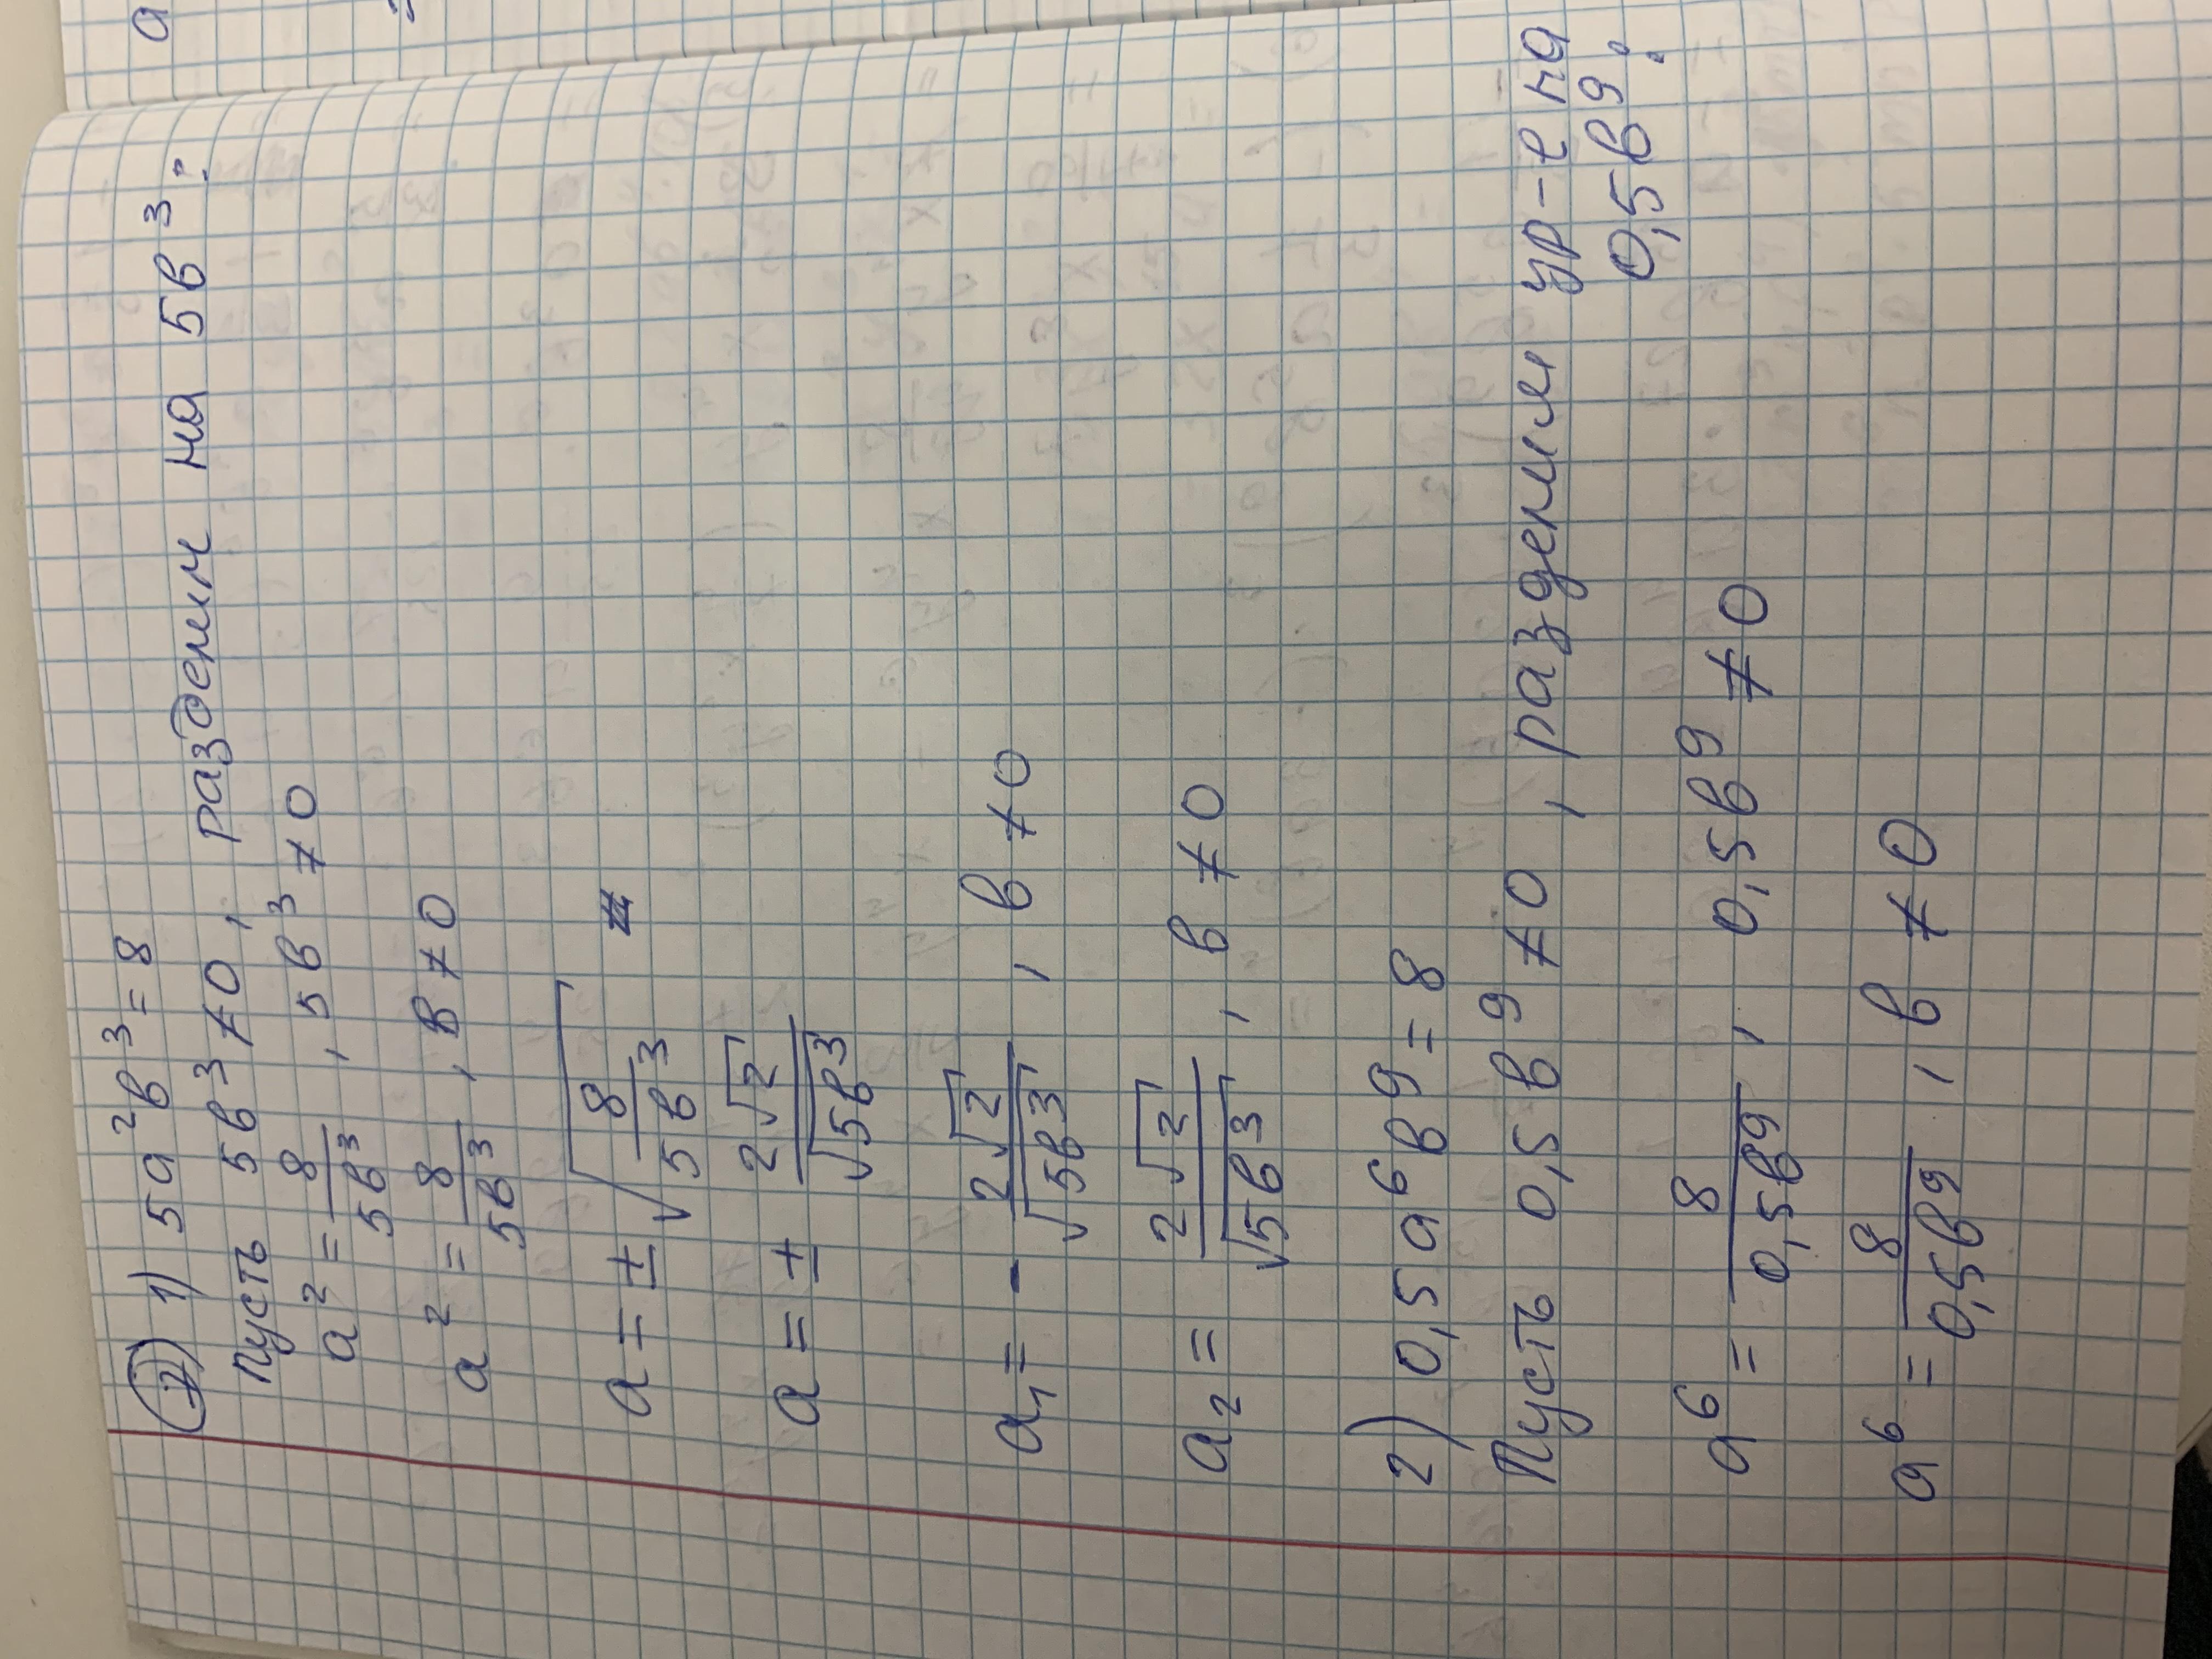 ② 1) 5a²b³ = 8
Пусть 5b³ ≠ 0, разделим на 5b³:
a² = 8/5b³, 5b³ ≠ 0
a² = 8/5b³, b ≠ 0
a = ± √(8/5b³)
a = ± 2√2/√5b³
a₁ = - 2√2/√5b³, b ≠ 0
a₂ = 2√2/√5b³, b ≠ 0
2) 0,5a⁶b⁹ = 8
Пусть 0,5b⁹ ≠ 0, разделим ур-е на
0,5b⁹:
a⁶ = 8/0,5b⁹, 0,5b⁹ ≠ 0
a⁶ = 8/0,5b⁹, b ≠ 0